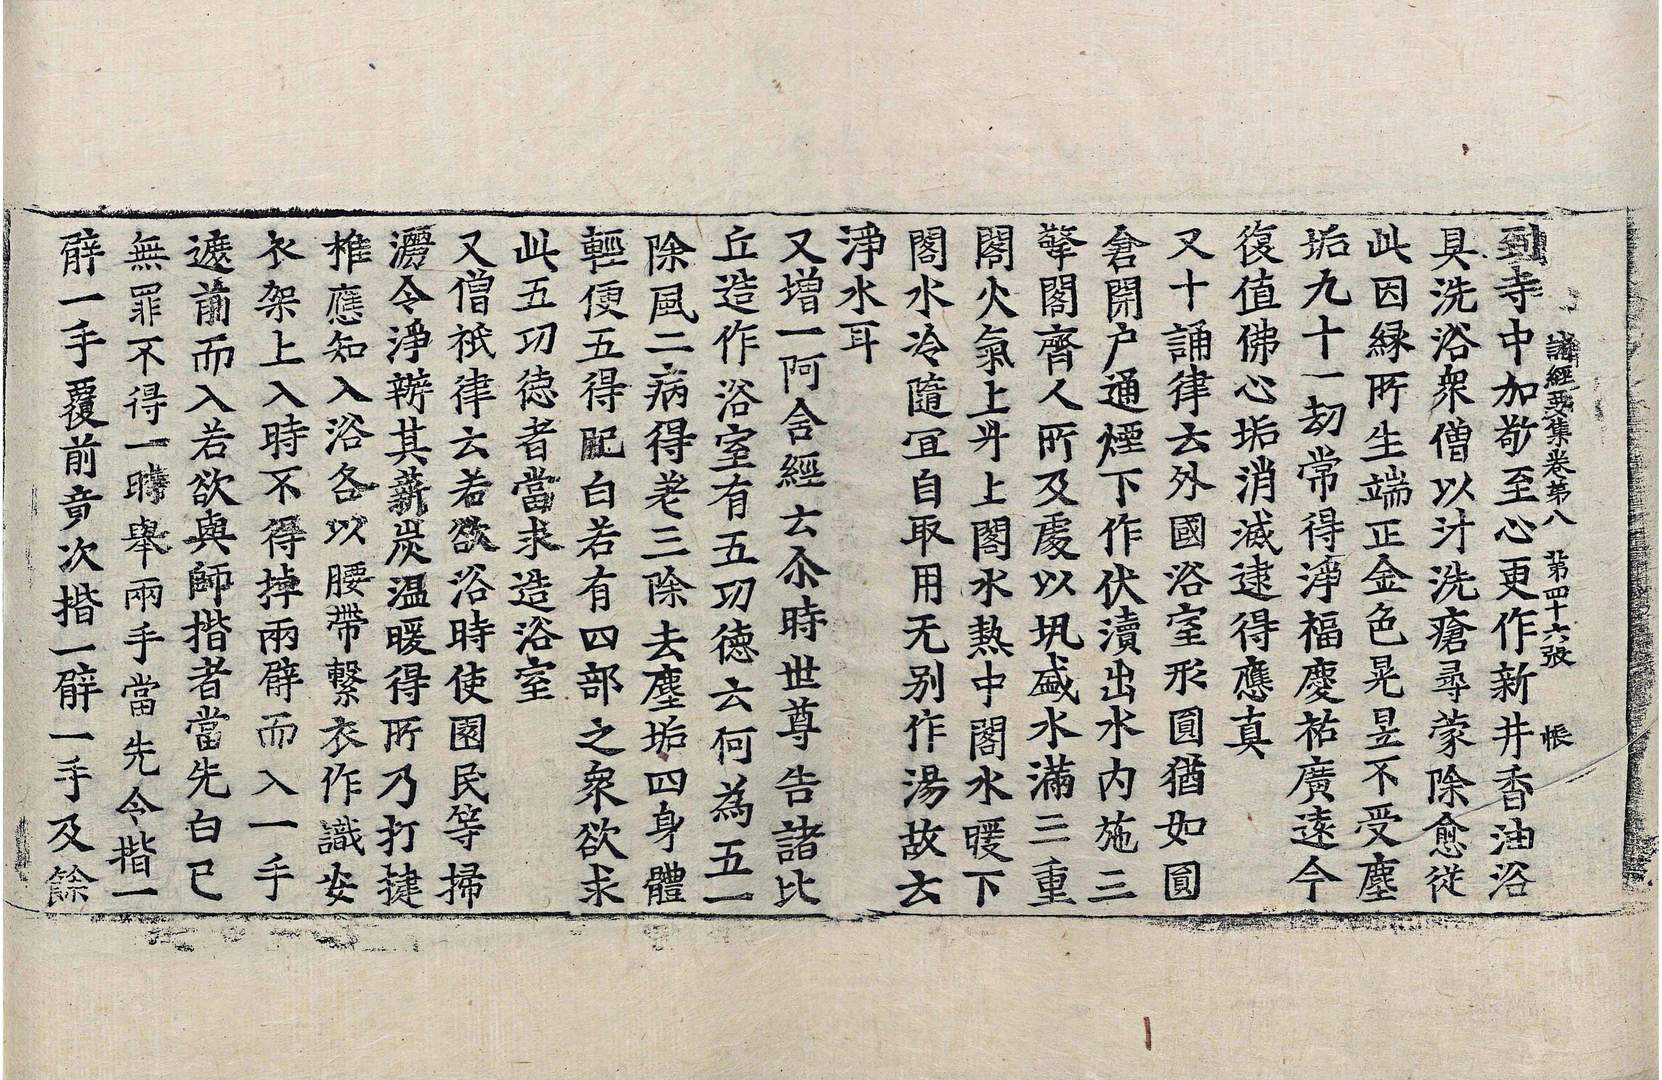 諸經要集卷第八 第四十六張 帳
到寺中加敬至心更作新井香油浴
具洗浴衆僧以汁洗瘡尋蒙除愈從
此因緣所生端正金色晃昱不受塵
垢九十一劫常得淨福慶祐廣遠今
復值佛心垢消滅逮得應真
又十誦律云外國浴室形圓猶如圓
倉開户通煙下作伏瀆出水内施三
擎閣齊人所及處以㼧盛水滿三重
閣火氣上升上閣水熱中閣水暖下
閣水冷隨冝自取用无别作湯故云
淨水耳
又增一阿含經云尒時世尊告諸比
丘造作浴室有五功德云何為五一
除風二病得差三除去塵垢四身體
輕便五得肥白若有四部之衆欲求
此五功德者當求造浴室
又僧祇律云若欲浴時使園民等掃
灑令淨辦其薪炭温暖得所乃打揵
椎應知入浴各以腰帶繫衣作識安
衣架上入時不得掉兩臂而入一手
遮前而入若欲與師揩者當先白已
無罪不得一時舉兩手當先令揩一
臂一手覆前竟次揩一臂一手及餘